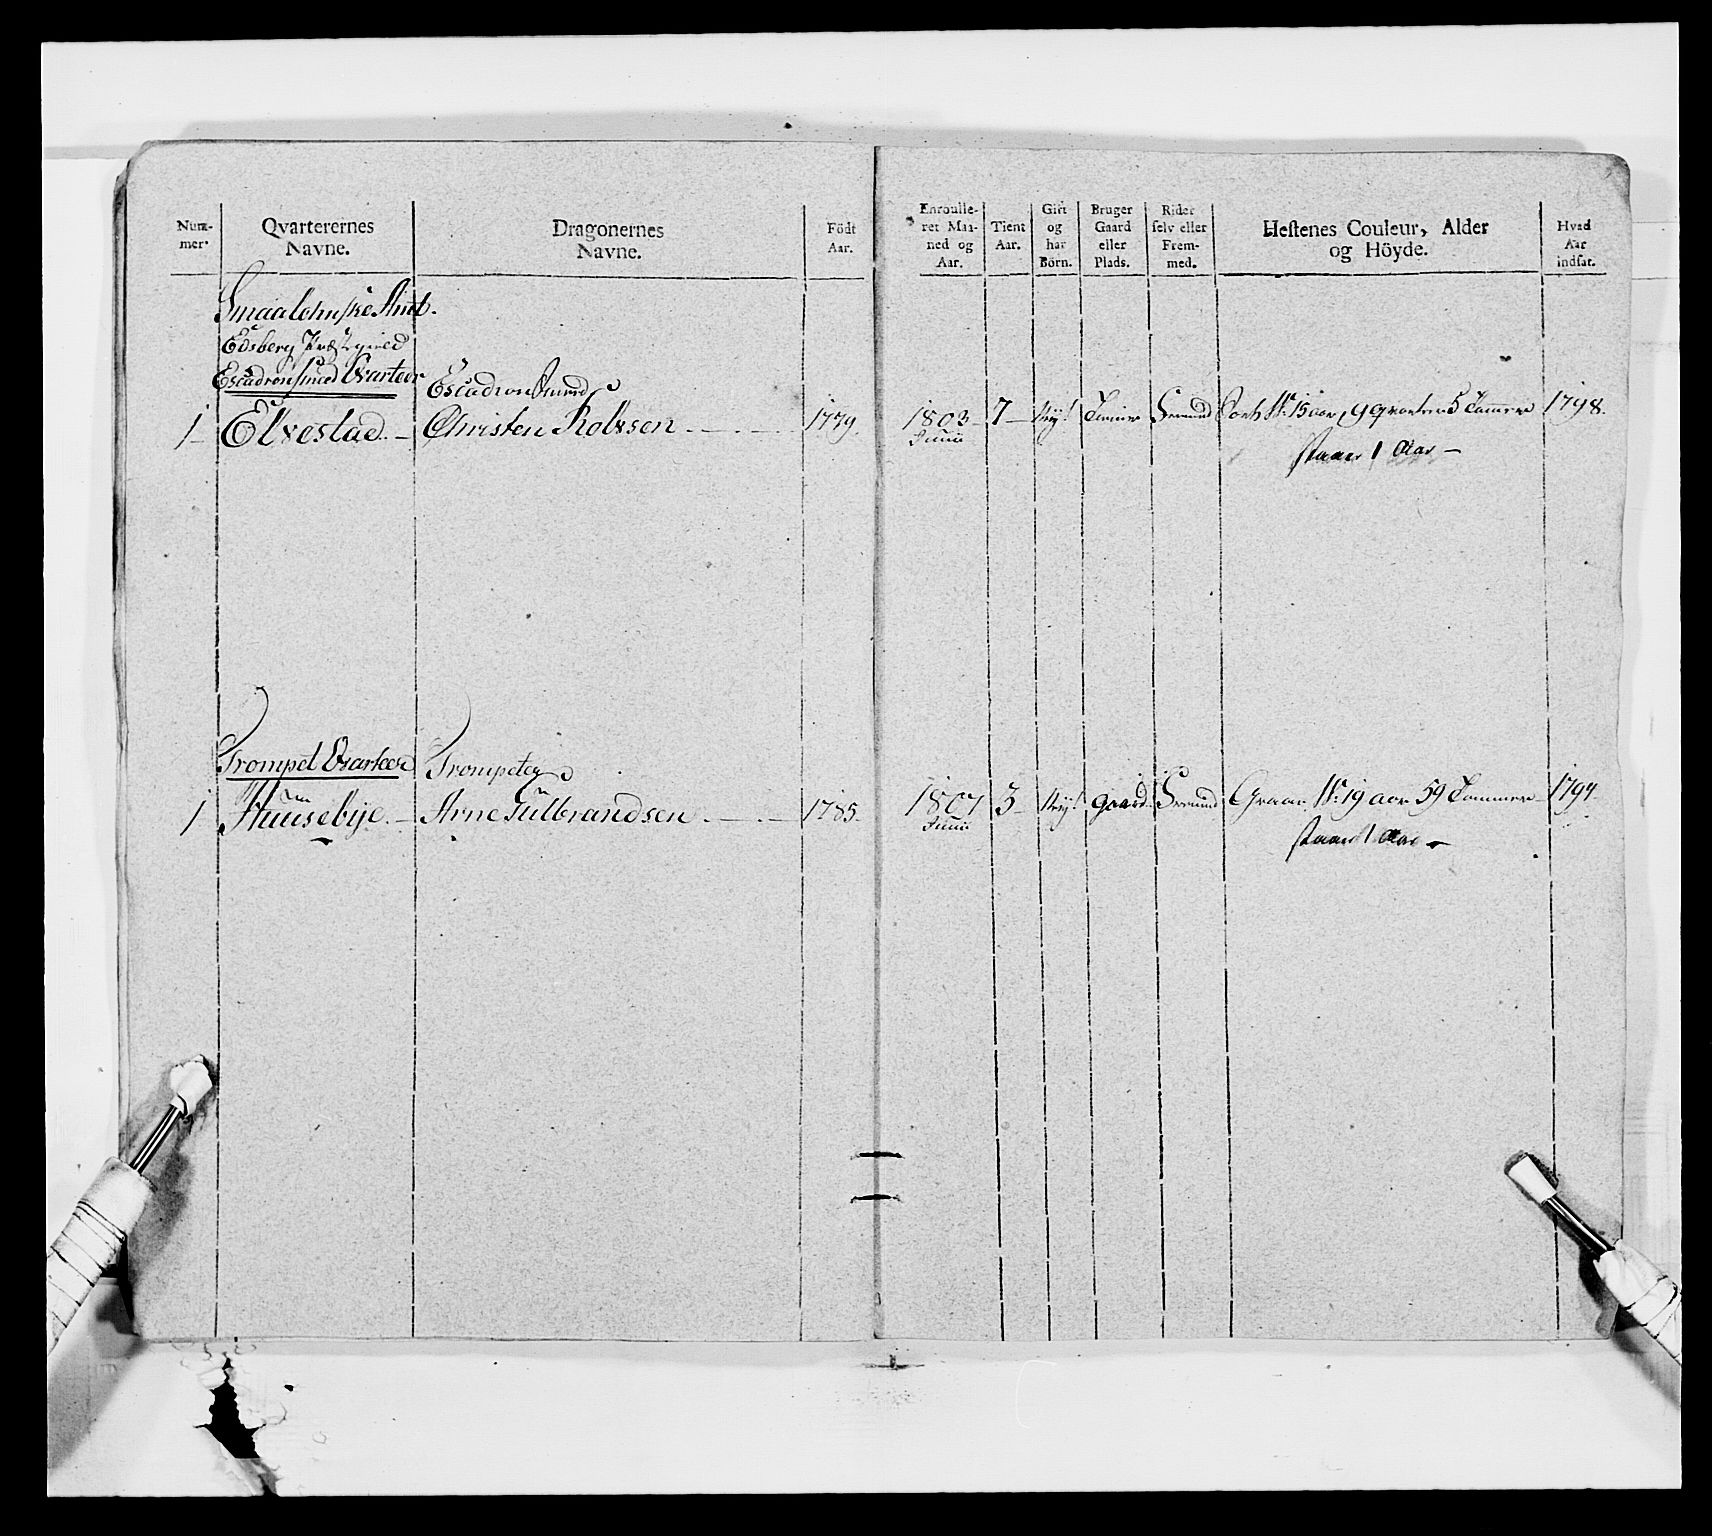 Num-
mer.
Qvarterernes
Navne.
Dragonernes
Navne.
Födt
Aar.
Enroulle-
ret Maa-
ned og
Aar.
Tient
Aar.
Gift
og
har
Börn.
Bruger
Gaard
eller
Plads.
Rider
selv eller
Frem-
med.
Hestenes Couleur, Alder
og Höyde.
Hvad
Aar
indsat.
Smaalehnske Amt.
Edsberg Præstegield
Escadronsmed Qvarteer
Escadron Smed
1 Elvestad. Christen Kolbsen 1779. 1803 7 Tienner Fremmed Sort H: 15 aar, 9 Qvarteer 5 Tommer 1798.
Junii
staaer 1 Aar
Trompet Qvarteer Trompeter
1 Huusebye. Arne Gulbrandsen 1785. 1807 3 Gaard Fremmed Graae H: 19 aar 59 Tommer 1794
Junii
staaer 1 Aar